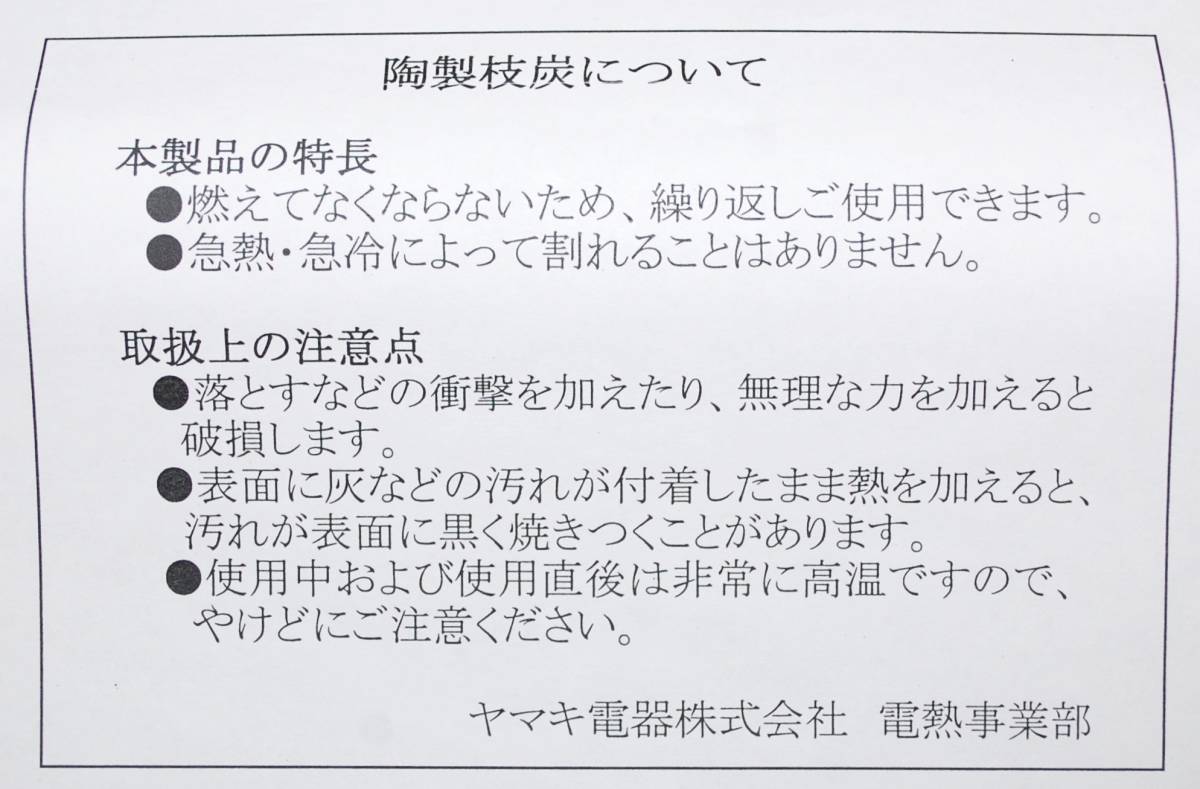 陶製枝炭について
本製品の特長
●燃えてなくならないため、繰り返しご使用できます。
●急熱・急冷によって割れることはありません。
取扱上の注意点
●落とすなどの衝撃を加えたり、無理な力を加えると
破損します。
●表面に灰などの汚れが付着したまま熱を加えると、
汚れが表面に黒く焼きつくことがあります。
●使用中および使用直後は非常に高温ですので、
やけどにご注意ください。
ヤマキ電器株式会社　電熱事業部